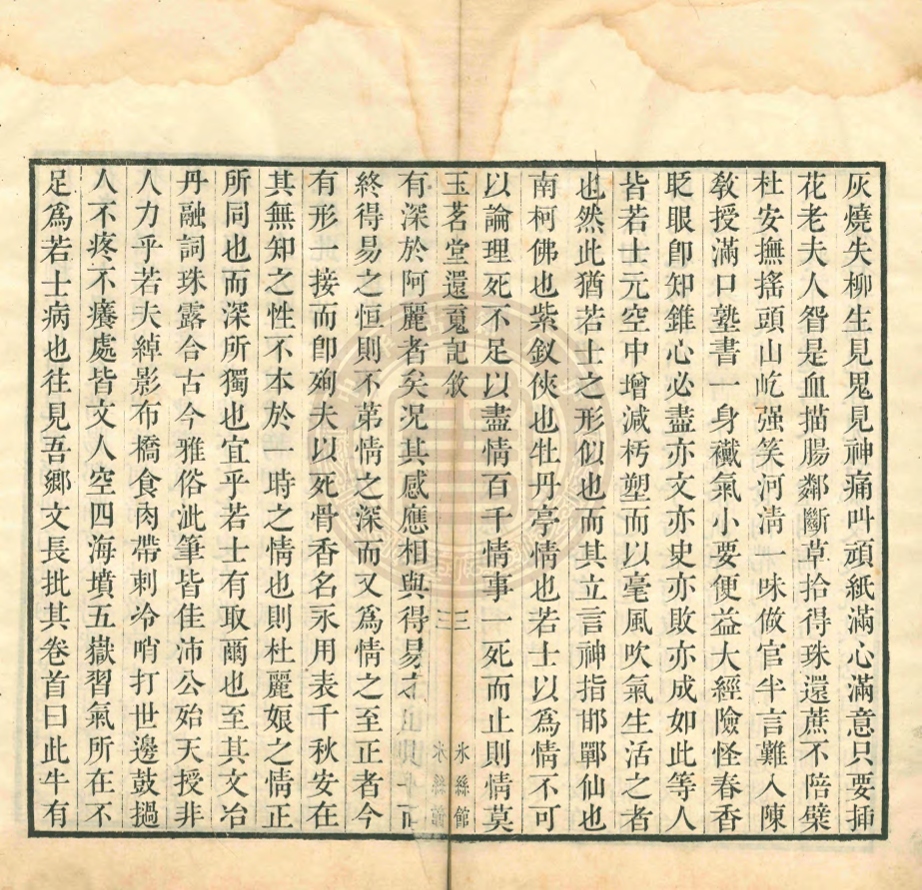 灰燒失柳生見鬼見神痛叫頑紙滿心滿意只要揷
花老夫人眢是血描腸鄰斷草拾得珠還蔗不陪檗
杜安撫搖頭山屹强笑河淸一味做官半言難入陳
敎授滿口塾書一身襶氣小要便益大經險怪春香
眨眼卽知錐心必盡亦文亦史亦敗亦成如此等人
皆若士元空中增減朽塑而以毫風吹氣生活之者
也然此猶若士之形似也而其立言神指邯鄲仙也
南柯佛也紫釵俠也牡丹亭情也若士以爲情不可
以論理死不足以盡情百千情事一死而止則情莫
玉茗堂還魂記敘 三 氷絲館
有深於阿麗者矣况其感應相與得易之
終得易之恒則不第情之深而又爲情之至正者今
有形一接而卽殉夫以死骨香名永用表千秋安在
其無知之性不本於一時之情也則杜麗娘之情正
所同也而深所獨也宜乎若士有取爾也至其文冶
丹融詞珠露合古今雅俗泚筆皆佳沛公殆天授非
人力乎若夫綽影布橋食肉帶刺冷哨打世邊鼓撾
人不疼不癢處皆文人空四海墳五嶽習氣所在不
足爲若士病也往見吾鄉文長批其卷首曰此牛有